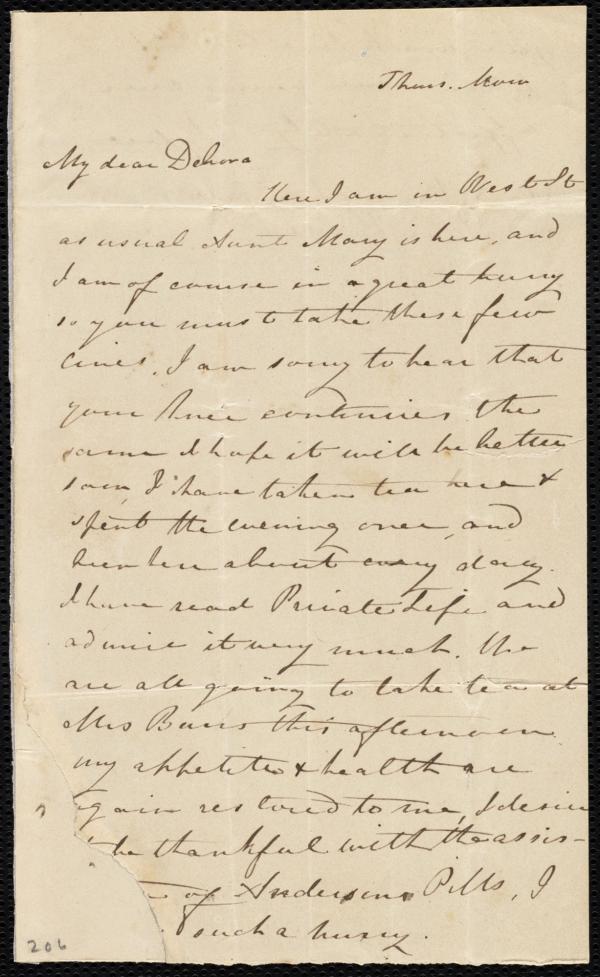 Thurs. Morn
My dear Debora
Here I am in West St
as usual Aunt Mary is here, and
I am of course in a great hurry
so you must take these few
lines. I am sorry to hear that
your knee continues the
same I hope it will be better
soon, I have taken tea here &
spent the evening once, and
been here about every day.
I have read Private Life and
admire it very much. We
are all going to take tea at
Mrs Burrs this afternoon
my appetite & health are
again restored to me, I desire
be thankful with the assis-
of Andersons Pills, I
such a hurry.
206